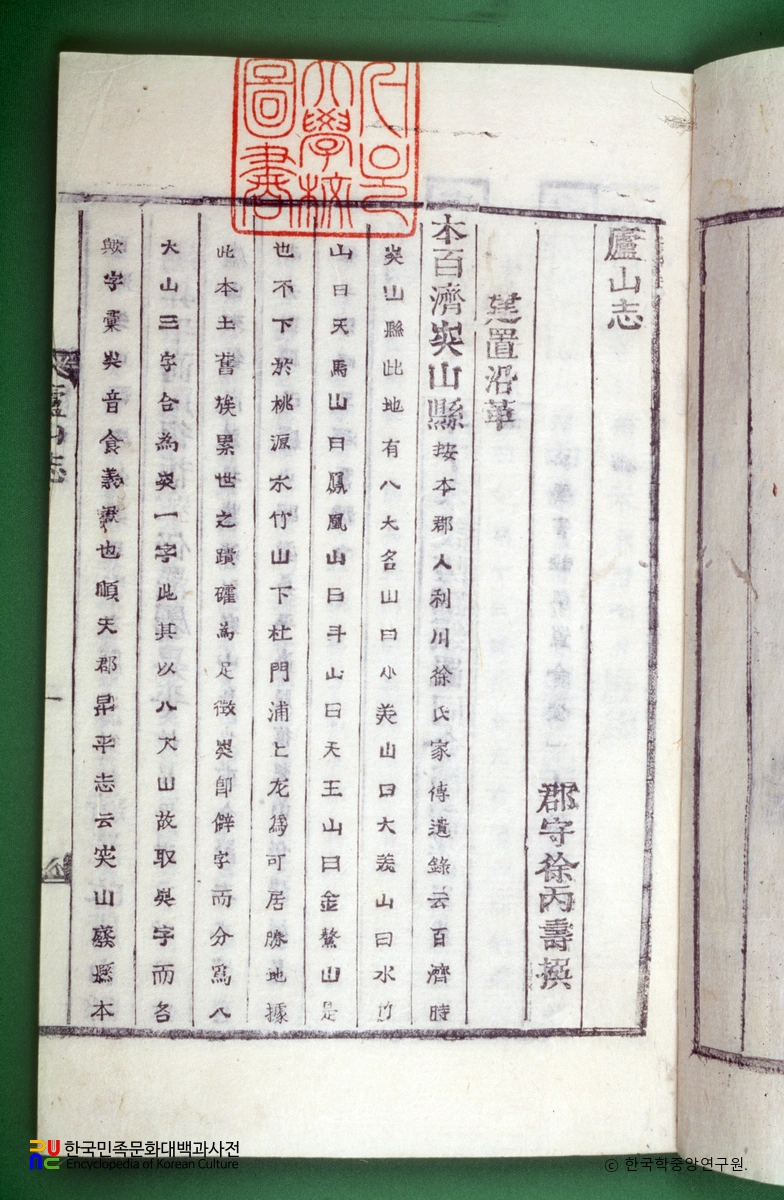 서울
大學校
圖書
廬山志
郡守徐丙壽撰
建置沿革
本百濟突山縣 按本郡人利川徐氏家傳遺錄云百濟時
山縣此地有八大名山曰小美山曰大美山曰水竹
山曰天馬山曰鳳凰山曰斗山曰天王山曰金鰲山是
也不下於桃源水竹山下杜門浦上尤爲可居勝地據
此本土舊族累世之蹟確為足徵卽僻字而分爲八
大山三字合為一字此其以八大山故取字而名
歟字彙音食義也順天郡昇平志云突山廢縣本
廬山志
一
한국민족문화대백과사전
Encyclopedia of Korean Culture
ⓒ 한국학중앙연구원.